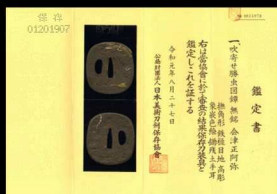 保存
01201907
鑑定書
一、吹寄せ勝虫図鐔 無銘 会津正阿弥
撫角形 鉄槌目地 高彫
象嵌色絵 鋤残土手耳
右は当協會に於て審査の結果保存刀装具と
鑑定しこれを証する
令和元年八月二十七日
公益財団法人日本美術刀剣保存協會